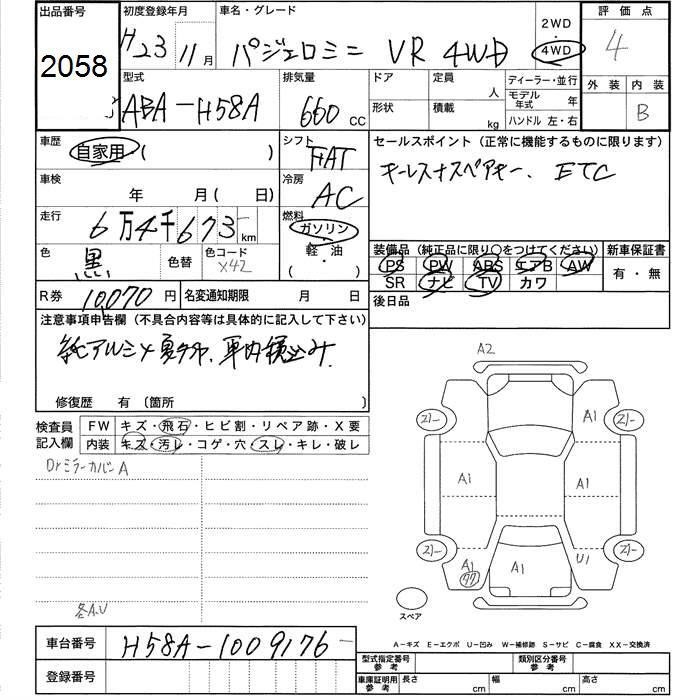 出品番号 初度登録年月 車名・グレード 2WD 評価点
2058 H23 11月 パジェロミニ VR 4WD 4WD 4
型式 排気量 ドア 定員 人 ディーラー・並行 外装 内装
ABA-H58A 660cc 形状 積載 kg モデル年式 年 B
ハンドル 左・右
車歴 自家用・( ) シフト FAT セールスポイント(正常に機能するものに限ります)
車検 年 月(日) 冷房 AC キーレス+スペアキー、ETC
走行 6万4千673km 燃料 ガソリン・
軽油
(・)
色 黒 色替 色コード X42 装備品(純正品に限り○をつけてください) 新車保証書
PS PW ABS エアB AW 有・無
SR ナビ TV カワ
R券 10,070円 名変通知期限 月 日 後日品
注意事項申告欄(不具合内容等は具体的に記入して下さい)
純アルミ 車内積込み
修復歴 有〔箇所 〕
検査員記入欄 FW キズ・飛石・ヒビ割・リペア跡・X要
内装 キズ・汚レ・コゲ・穴・スレ・キレ・破レ
Drミラーカバー A
各A.U
A2
2/-
2/-
A1
A1
A1
A1
2/-
2/-
A1
A1
U1
スペア
車台番号 H58A-1009176
登録番号
A-キズ E-エクボ U-凹み W-補修跡 S-サビ C-腐食 XX-交換済
型式指定番号 参考 類別区分番号 参考
車庫証明用 参考 長さ cm 幅 cm 高さ cm